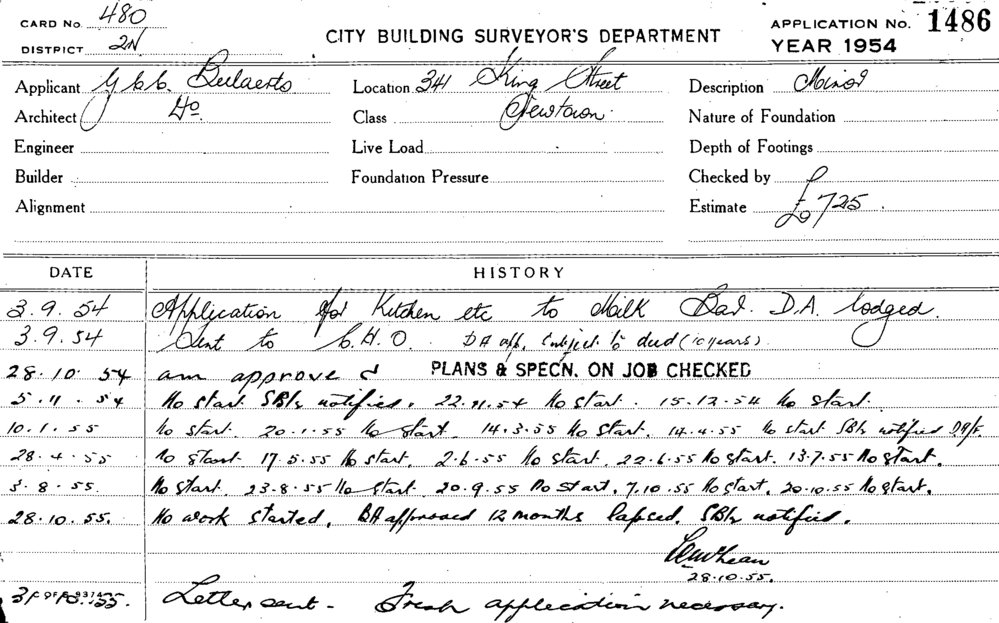 CARD No. 480
DISTRICT 2N
CITY BUILDING SURVEYOR'S DEPARTMENT
APPLICATION No. 1486
YEAR 1954
Applicant Location 341 King Street Description Minor
Architect Do. Class Newtown. Nature of Foundation
Engineer Live Load Depth of Footings
Builder Foundation Pressure Checked by
Alignment Estimate £725.
DATE HISTORY
3.9.54 Application for Kitchen etc to Milk Bar. D.A. lodged.
3.9.54 Sent to C.H.O. DA app. subject to deed (10 years).
28.10.54 am approved PLANS & SPEC'N. ON JOB CHECKED
5.11.54 No start. SBIs notified. 22.11.54 No start. 15.12.54 No start.
10.1.55 No start. 20.1.55 No start. 14.3.55 No start. 14.4.55 No start SBIs notified
28.4.55 No start 17.5.55 No start. 2.6.55 No start. 22.6.55 No start. 13.7.55 No start.
3.8.55. No start. 23.8.55 No start. 20.9.55 No start. 7.10.55 No start. 20.10.55 No start.
28.10.55. No work started. BA approved 12 months lapsed. SBIs notified.
28.10.55.
Letter sent - Fresh application necessary.